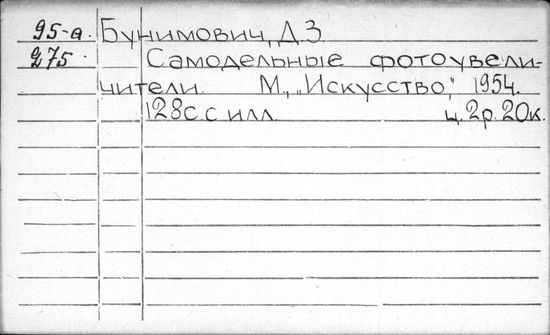 95-а. Бунимович, Д.З.
275. Самодельные фотоувели-
чители. М., „Искусство," 1954.
128с. с илл. ц. 2р. 20к.